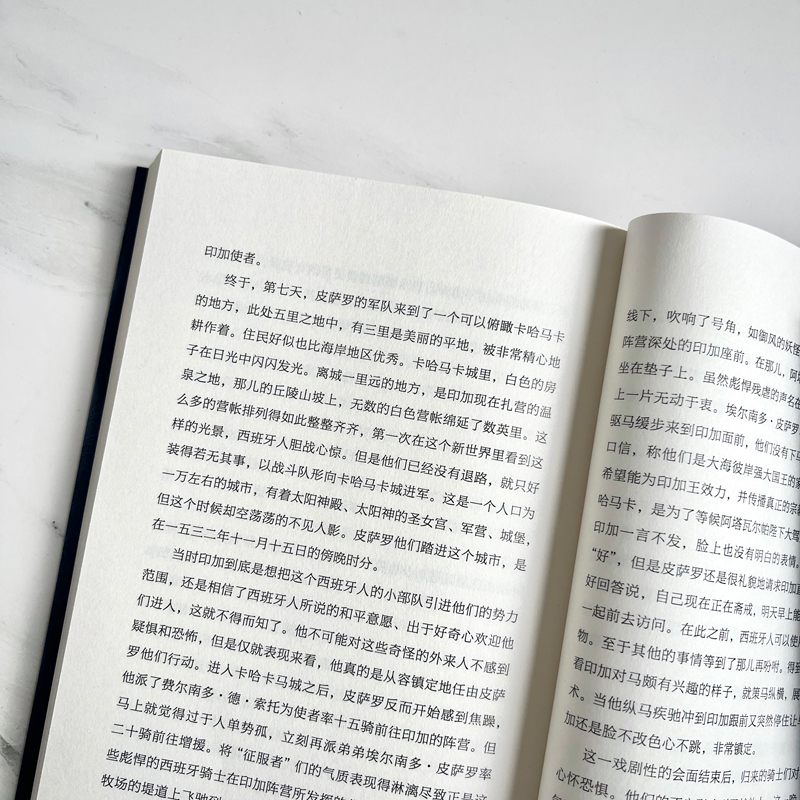 印加使者。
终于，第七天，皮萨罗的军队来到了一个可以俯瞰卡哈马卡
的地方，此处五里之地中，有三里是美丽的平地，被非常精心地
耕作着。住民好似也比海岸地区优秀。卡哈马卡城里，白色的房
子在日光中闪闪发光。离城一里远的地方，是印加现在扎营的温
泉之地，那儿的丘陵山坡上，无数的白色营帐绵延了数英里。这
么多的营帐排列得如此整整齐齐，第一次在这个新世界里看到这
样的光景，西班牙人胆战心惊。但是他们已经没有退路，就只好
装得若无其事，以战斗队形向卡哈马卡城进军。这是一个人口为
一万左右的城市，有着太阳神殿、太阳神的圣女宫、军营、城堡，
但这个时候却空荡荡的不见人影。皮萨罗他们踏进这个城市，是
在一五三二年十一月十五日的傍晚时分。
当时印加到底是想把这个西班牙人的小部队引进他们的势力
范围，还是相信了西班牙人所说的和平意愿、出于好奇心欢迎他
们进人，这就不得而知了。他不可能对这些奇怪的外来人不感到
疑惧和恐怖，但是仅就表现来看，他真的是从容镇定地任由皮萨
罗他们行动。进入卡哈卡马城之后，皮萨罗反而开始感到焦躁，
他派了费尔南多·德·索托为使者率十五骑前往印加的阵营。但
马上就觉得过于人单势孤，立刻再派弟弟埃尔南多·皮萨罗率
二十骑前往增援。将“征服者”们的气质表现得淋漓尽致正是这
些彪悍的西班牙骑士在印加阵营所发挥的
牧场的堤道上飞驰到
线下，吹响了号角，如御风的妖怪
阵营深处的印加座前。在那儿，阿
坐在垫子上。虽然彪悍残虐的声名在
上一片无动于衷。埃尔南多·皮萨罗
驱马缓步来到印加面前，他们没有下马
口信，称他们是大海彼岸强大国王的
希望能为印加王效力，并传播真正的宗
哈马卡，是为了等候阿塔瓦尔帕陛下大驾
印加一言不发，脸上也没有明白的表情，
“好”，但是皮萨罗还是很礼貌地请求印加
好回答说，自己现在正在斋戒，明天早上能
一起前去访问。在此之前，西班牙人可以使
物。至于其他的事情等到了那儿再吩咐。得到
看印加对马颇有兴趣的样子，就策马纵横，展
术。当他纵马疾驰冲到印加跟前又突然停住让
加还是脸不改色心不跳，非常镇定。
这一戏剧性的会面结束后，归来的骑士们对
心怀恐惧。他们的